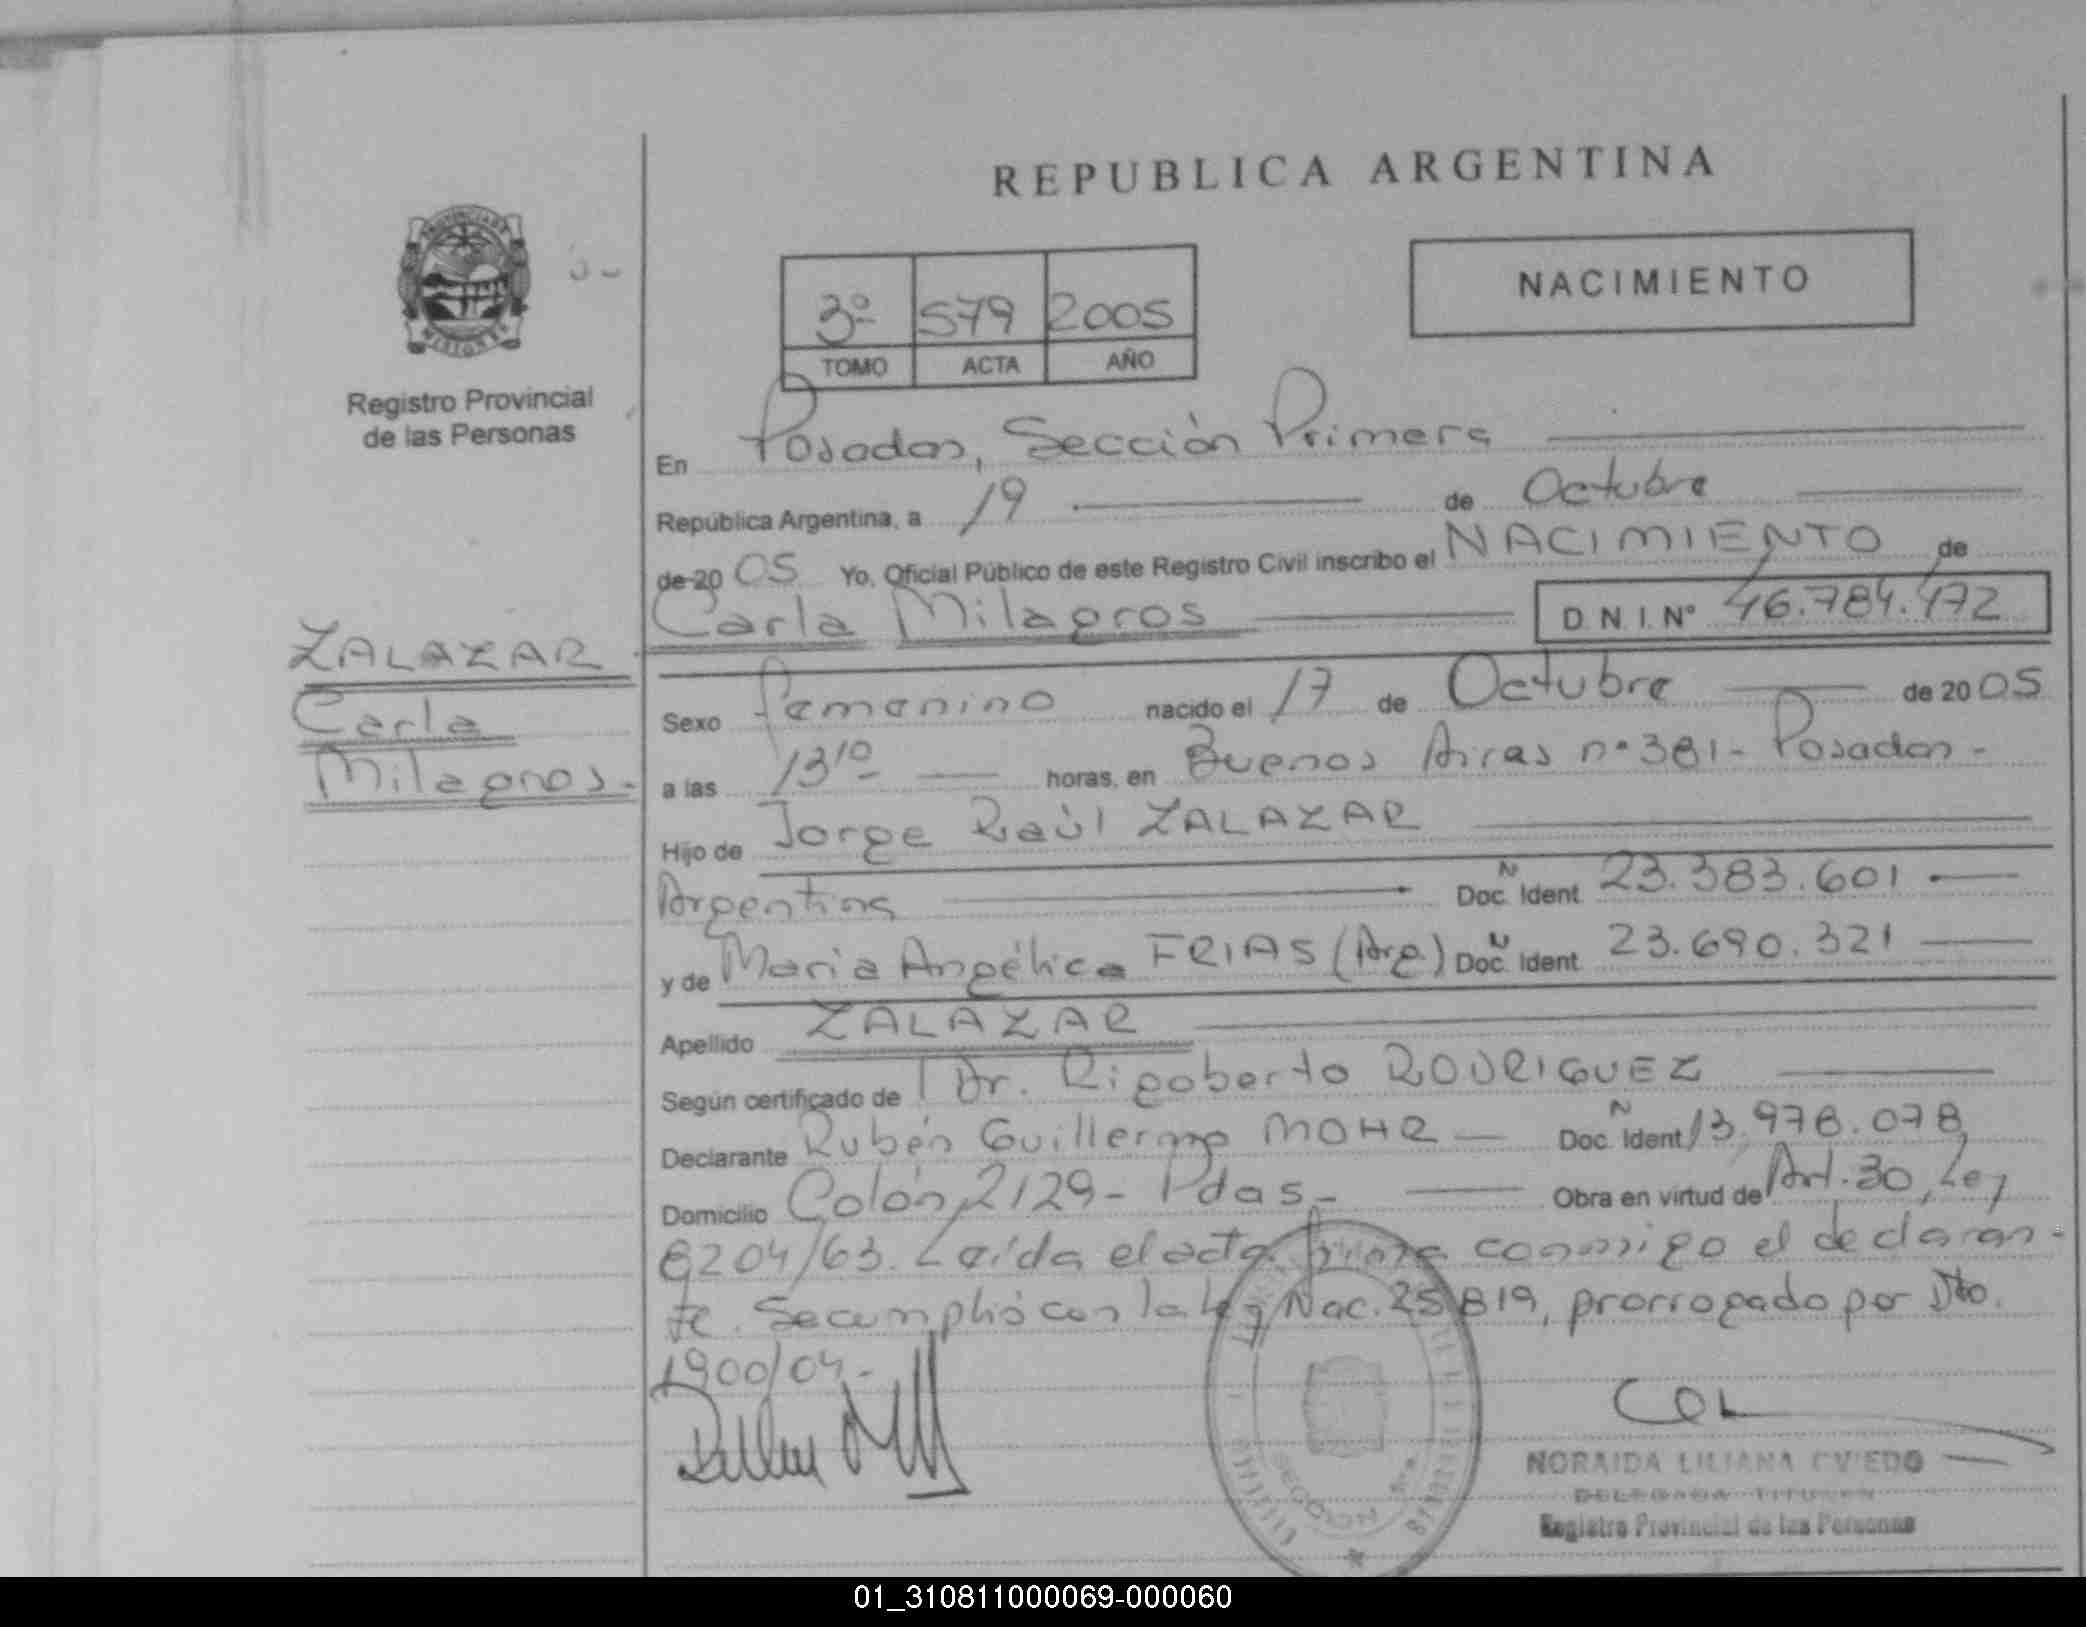 REPUBLICA ARGENTINA
NACIMIENTO
3º 579 2005
TOMO ACTA AÑO
MISIONES
Registro Provincial
de las Personas
En Posadas, Sección Primera
República Argentina, a 19 de Octubre
de 20 05 Yo, Oficial Público de este Registro Civil inscribo el NACIMIENTO de
Carla Milagros D.N.I. Nº 46.784.172
ZALAZAR
Carla
Milagros.-
Sexo femenino nacido el 17 de Octubre de 20 05
a las 13 10 horas, en Buenos Aires nº 381 - Posadas -
Hijo de Jorge Raúl ZALAZAR
Argentina Doc. Ident. 23.383.601
y de María Angélica FRIAS (Arg.) Doc. Ident. 23.690.321
Apellido ZALAZAR
Según certificado de Dr. Rigoberto RODRIGUEZ
Declarante Rubén Guillermo MOHR Doc. Ident 13.978.078
Domicilio Colón 2129 - Pdas - Obra en virtud de Art. 30, Ley
8204/63. Leída el acta firma conmigo el declaran-
te. Se cumplió con la ley Nac. 25819, prorrogado por Dto.
1900/04.-
NORAIDA LILIANA OVIEDO
DELEGADA TITULAR
Registro Provincial de las Personas
01_310811000069-000060